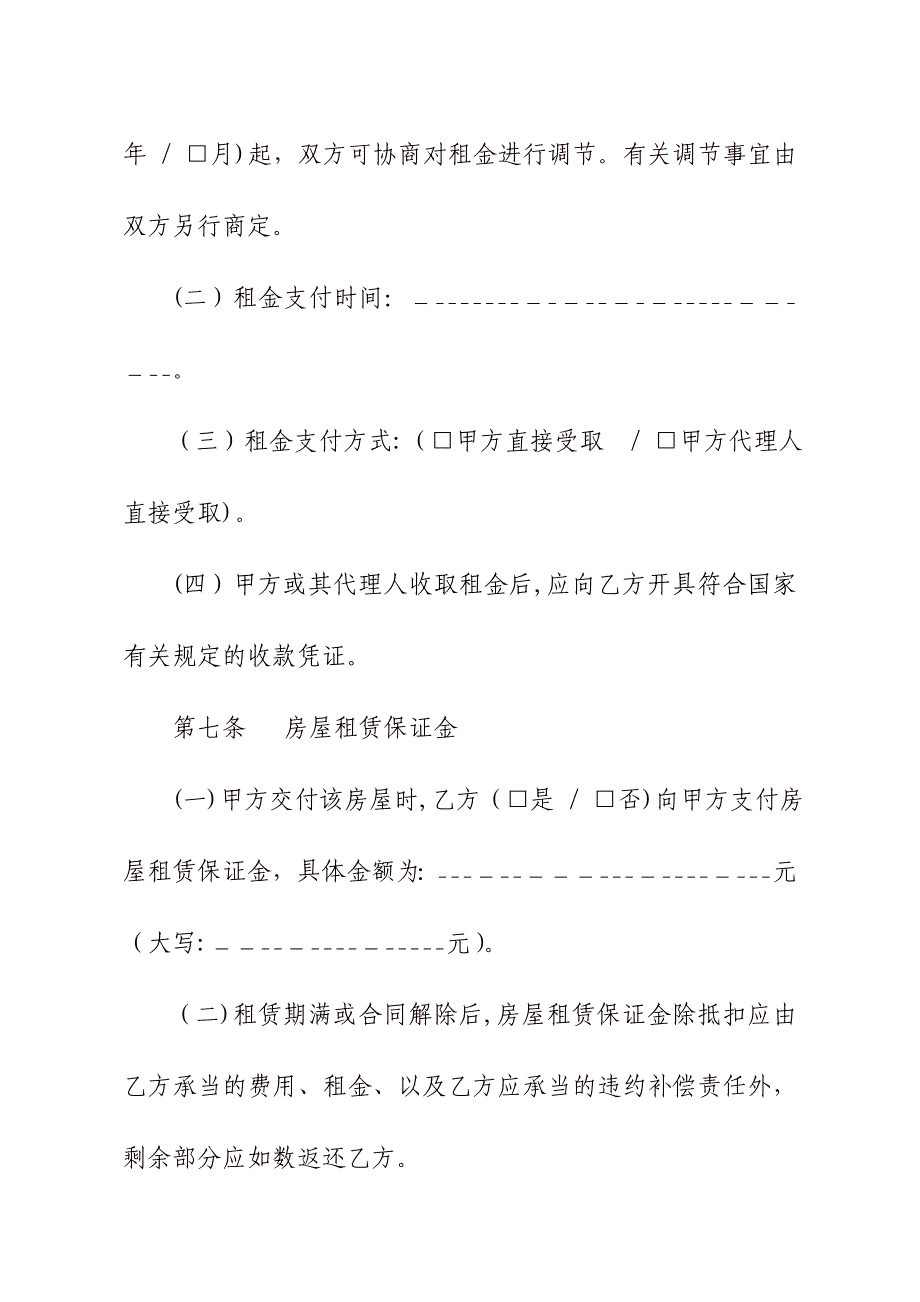 年 / □月)起，双方可协商对租金进行调节。有关调节事宜由
双方另行商定。
(二）租金支付时间： _--------_-_--_-_-----_-_--
_--。
（三）租金支付方式：（□甲方直接受取 / □甲方代理人
直接受取)。
(四）甲方或其代理人收取租金后,应向乙方开具符合国家
有关规定的收款凭证。
第七条 房屋租赁保证金
(一)甲方交付该房屋时,乙方（□是 / □否)向甲方支付房
屋租赁保证金，具体金额为: ---_--_-_---_----_---元
（大写: _ _--_----_-----元)。
（二)租赁期满或合同解除后,房屋租赁保证金除抵扣应由
乙方承当的费用、租金、以及乙方应承当的违约补偿责任外，
剩余部分应如数返还乙方。